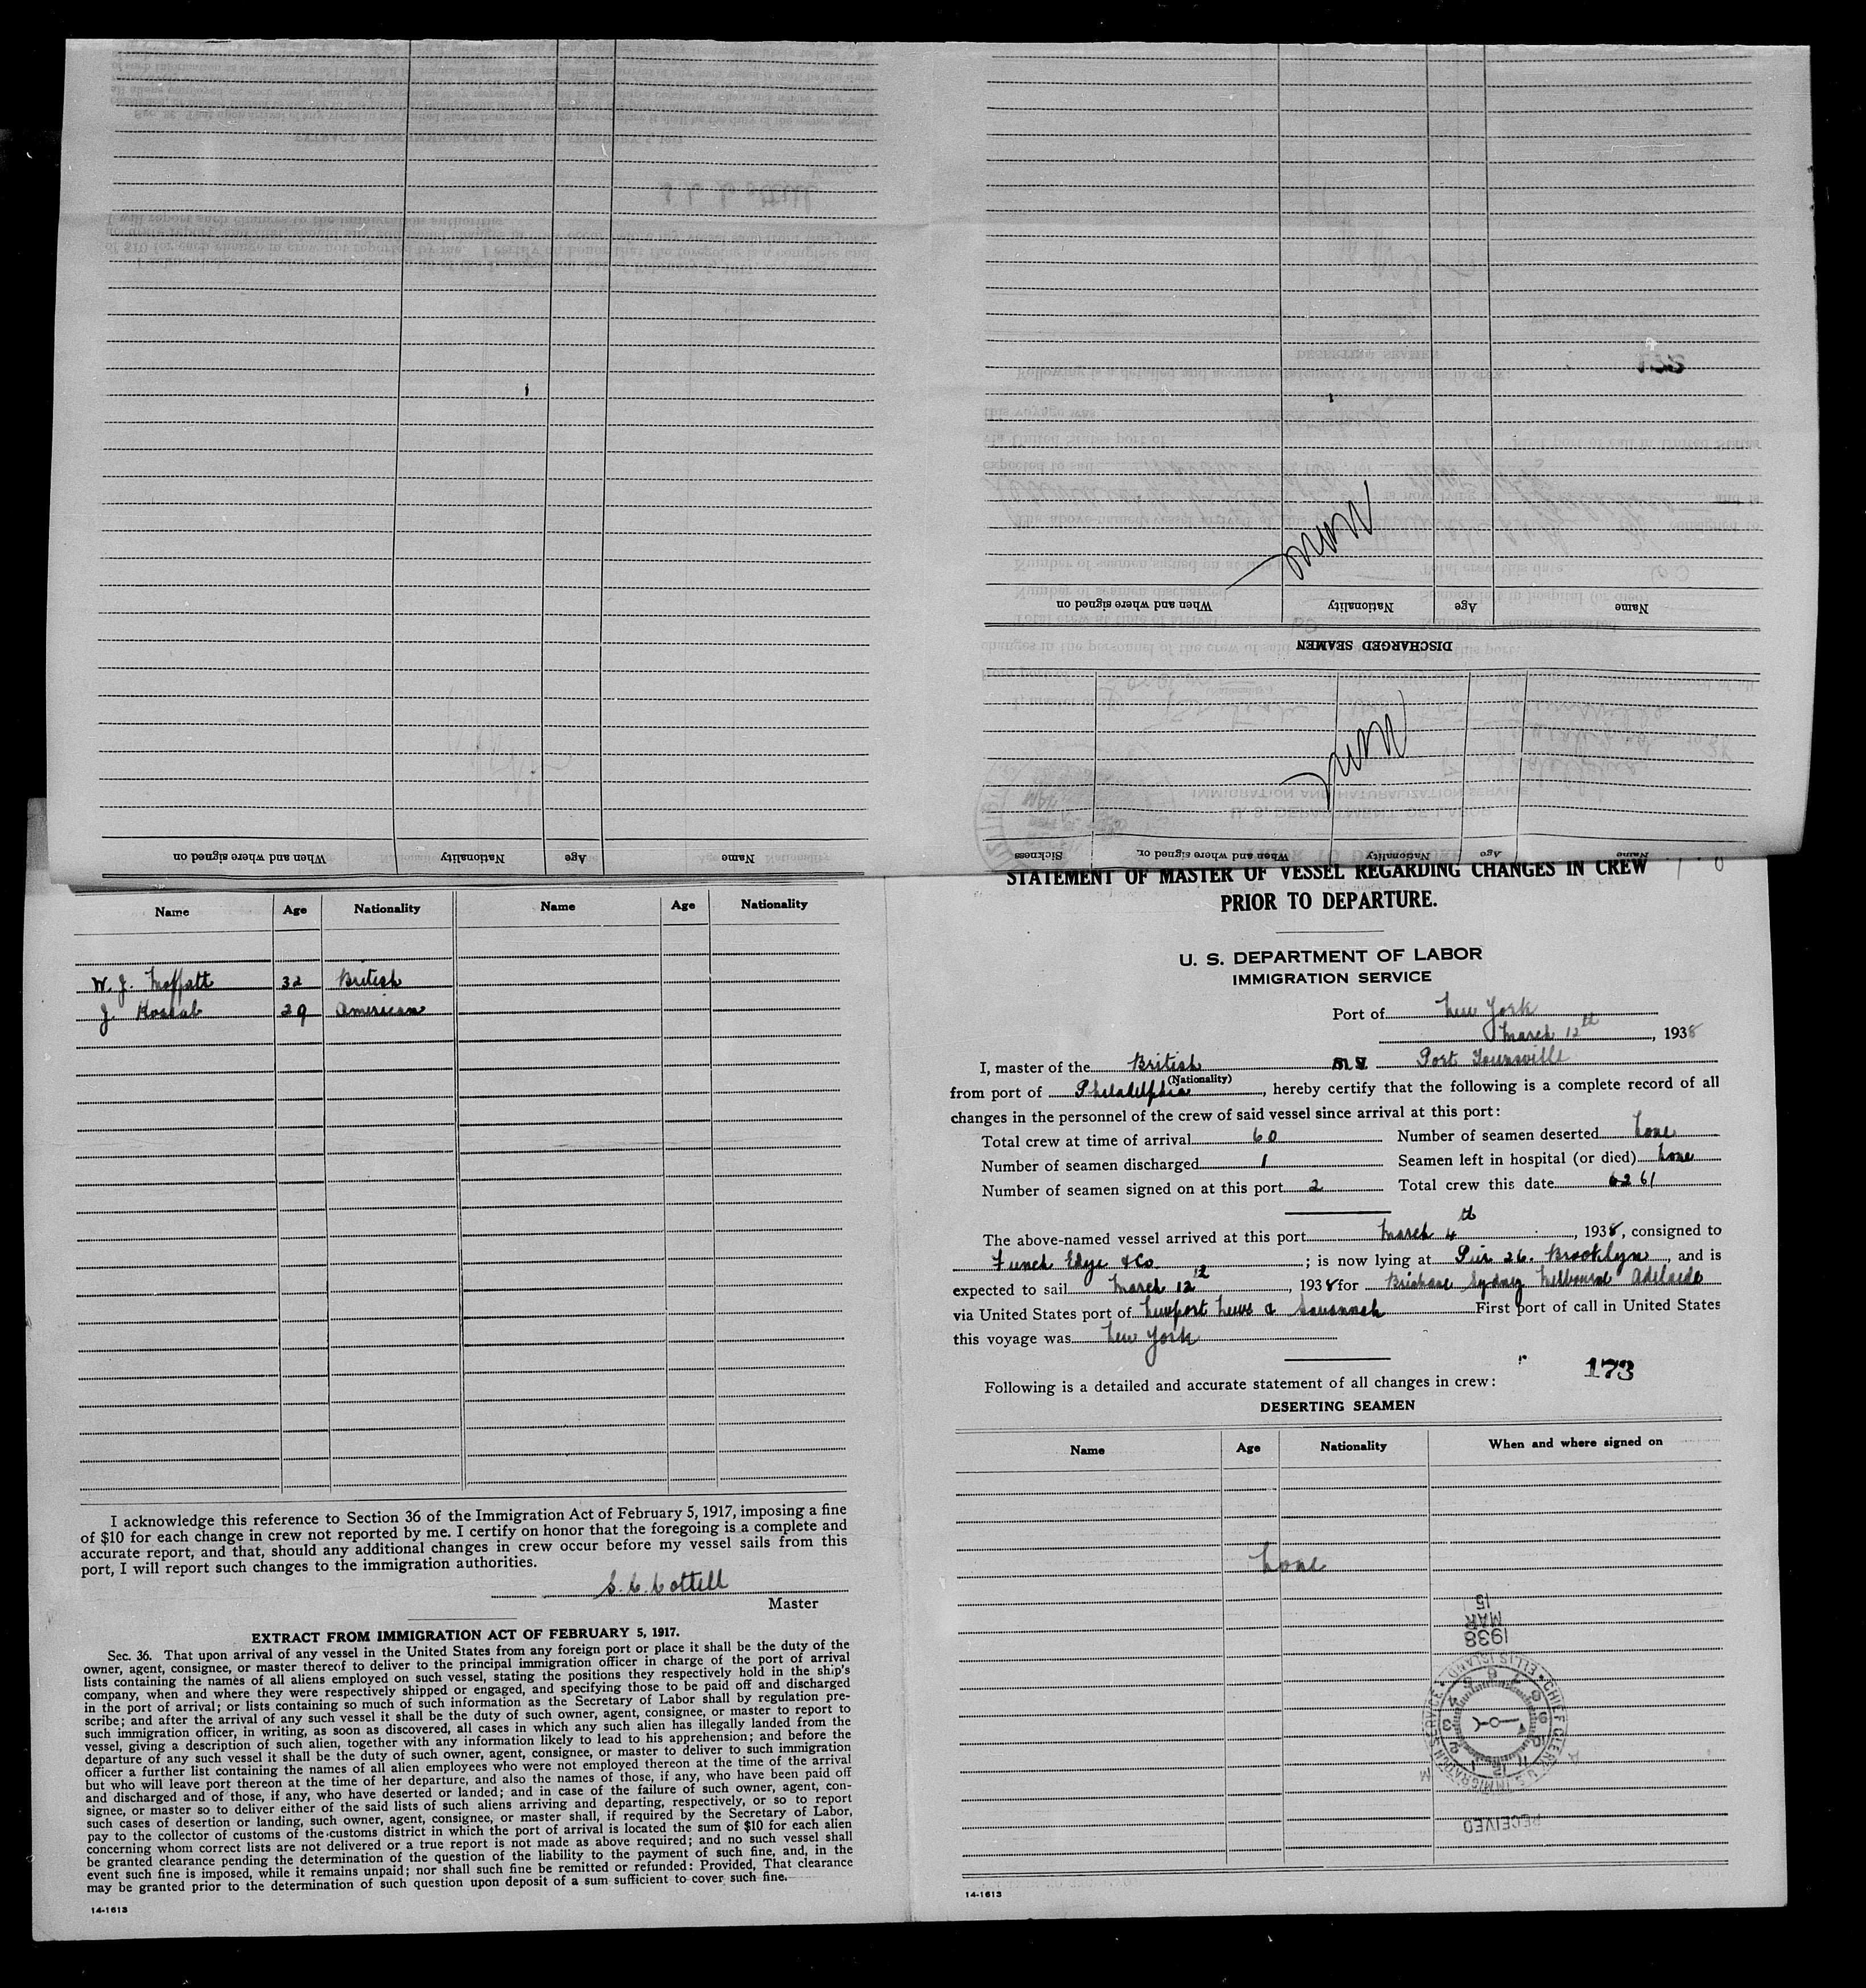 When and where signed on Nationality Age Name
DISCHARGED SEAMEN
Name Age Nationality When and where signed on
None
Name Age Nationality When and where signed on, or Sickness
None
Name Age Nationality Name Age Nationality
W. J. Moffatt 32 British
J. 29 American
I acknowledge this reference to Section 36 of the Immigration Act of February 5, 1917, imposing a fine
of $10 for each change in crew not reported by me. I certify on honor that the foregoing is a complete and
accurate report, and that, should any additional changes in crew occur before my vessel sails from this
port, I will report such changes to the immigration authorities.
S. C. Cottell
Master
EXTRACT FROM IMMIGRATION ACT OF FEBRUARY 5, 1917.
Sec. 36. That upon arrival of any vessel in the United States from any foreign port or place it shall be the duty of the
owner, agent, consignee, or master thereof to deliver to the principal immigration officer in charge of the port of arrival
lists containing the names of all aliens employed on such vessel, stating the positions they respectively hold in the ship's
company, when and where they were respectively shipped or engaged, and specifying those to be paid off and discharged
in the port of arrival; or lists containing so much of such information as the Secretary of Labor shall by regulation pre-
scribe; and after the arrival of any such vessel it shall be the duty of such owner, agent, consignee, or master to report to
such immigration officer, in writing, as soon as discovered, all cases in which any such alien has illegally landed from the
vessel, giving a description of such alien, together with any information likely to lead to his apprehension; and before the
departure of any such vessel it shall be the duty of such owner, agent, consignee, or master to deliver to such immigration
officer a further list containing the names of all alien employees who were not employed thereon at the time of the arrival
but who will leave port thereon at the time of her departure, and also the names of those, if any, who have been paid off
and discharged and of those, if any, who have deserted or landed; and in case of the failure of such owner, agent, con-
signee, or master so to deliver either of the said lists of such aliens arriving and departing, respectively, or so to report
such cases of desertion or landing, such owner, agent, consignee, or master shall, if required by the Secretary of Labor,
pay to the collector of customs of the customs district in which the port of arrival is located the sum of $10 for each alien
concerning whom correct lists are not delivered or a true report is not made as above required; and no such vessel shall
be granted clearance pending the determination of the question of the liability to the payment of such fine, and, in the
event such fine is imposed, while it remains unpaid; nor shall such fine be remitted or refunded: Provided, That clearance
may be granted prior to the determination of such question upon deposit of a sum sufficient to cover such fine.
14-1613
STATEMENT OF MASTER OF VESSEL REGARDING CHANGES IN CREW
PRIOR TO DEPARTURE.
U. S. DEPARTMENT OF LABOR
IMMIGRATION SERVICE
Port of New York
March 12th, 1938
I, master of the British M.V. Port Townsville
(Nationality)
from port of Philadelphia, hereby certify that the following is a complete record of all
changes in the personnel of the crew of said vessel since arrival at this port:
Total crew at time of arrival 60 Number of seamen deserted None
Number of seamen discharged 1 Seamen left in hospital (or died) None
Number of seamen signed on at this port 2 Total crew this date 62 61
The above-named vessel arrived at this port March 4th, 1938, consigned to
Funch Edye & Co ; is now lying at Pier 26. Brooklyn, and is
expected to sail March 12th, 1938 for Brisbane Sydney Melbourne Adelaide
via United States port of Newport News & Savannah First port of call in United States
this voyage was New York
173
Following is a detailed and accurate statement of all changes in crew:
DESERTING SEAMEN
Name Age Nationality When and where signed on
None
1938 MAR 15
CHIEF CLERK U.S. IMMIGRATION SERVICE ELLIS ISLAND
RECEIVED
14-1613